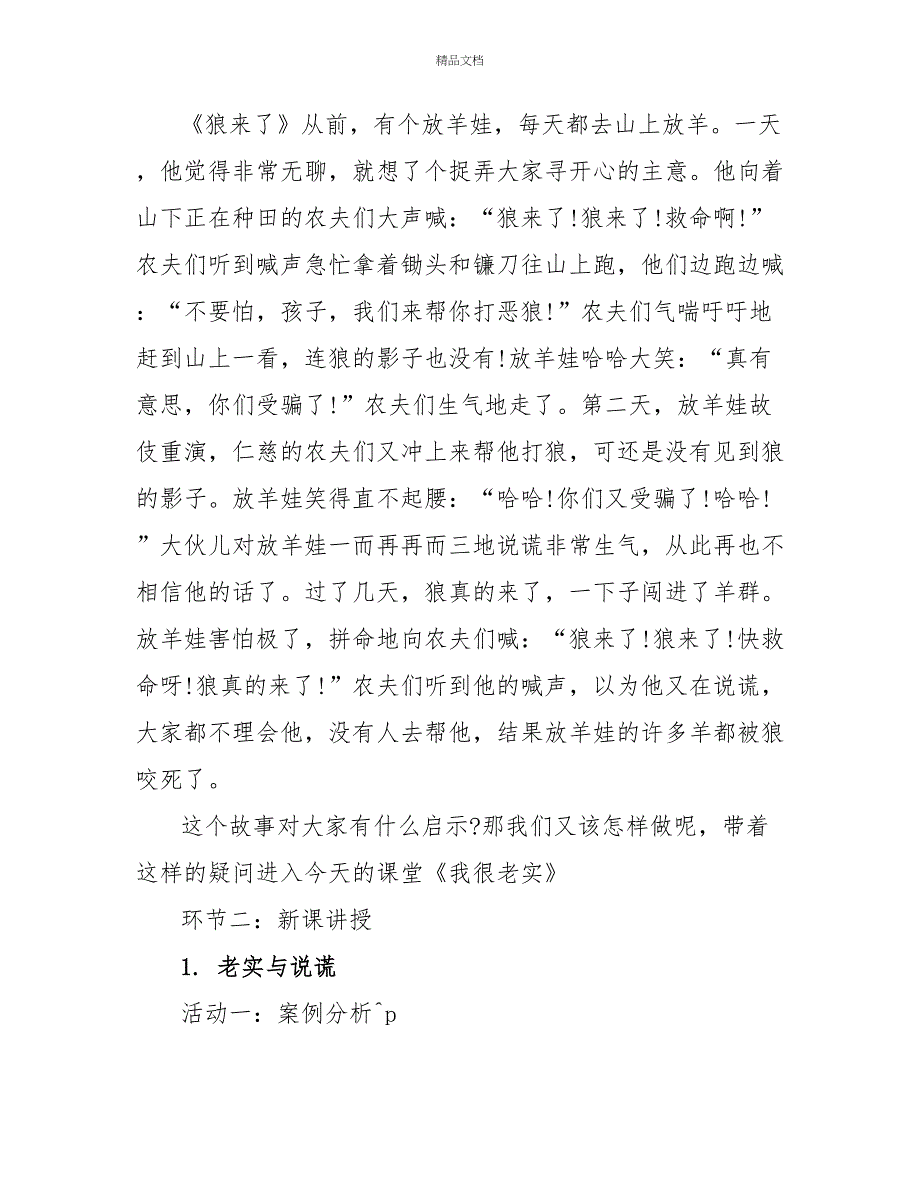 精品文档
《狼来了》从前，有个放羊娃，每天都去山上放羊。一天
，他觉得非常无聊，就想了个捉弄大家寻开心的主意。他向着
山下正在种田的农夫们大声喊：“狼来了!狼来了!救命啊!”
农夫们听到喊声急忙拿着锄头和镰刀往山上跑，他们边跑边喊
：“不要怕，孩子，我们来帮你打恶狼!”农夫们气喘吁吁地
赶到山上一看，连狼的影子也没有!放羊娃哈哈大笑：“真有
意思，你们受骗了!”农夫们生气地走了。第二天，放羊娃故
伎重演，仁慈的农夫们又冲上来帮他打狼，可还是没有见到狼
的影子。放羊娃笑得直不起腰：“哈哈!你们又受骗了!哈哈!
”大伙儿对放羊娃一而再再而三地说谎非常生气，从此再也不
相信他的话了。过了几天，狼真的来了，一下子闯进了羊群。
放羊娃害怕极了，拼命地向农夫们喊：“狼来了!狼来了!快救
命呀!狼真的来了!”农夫们听到他的喊声，以为他又在说谎，
大家都不理会他，没有人去帮他，结果放羊娃的许多羊都被狼
咬死了。
这个故事对大家有什么启示?那我们又该怎样做呢，带着
这样的疑问进入今天的课堂《我很老实》
环节二：新课讲授
1. 老实与说谎
活动一：案例分析^p